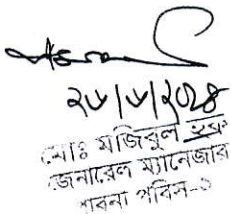 ২৮|৮|২০২৪
মোঃ মজিবুল হক
জেনারেল ম্যানেজার
পাবনা পবিস-১